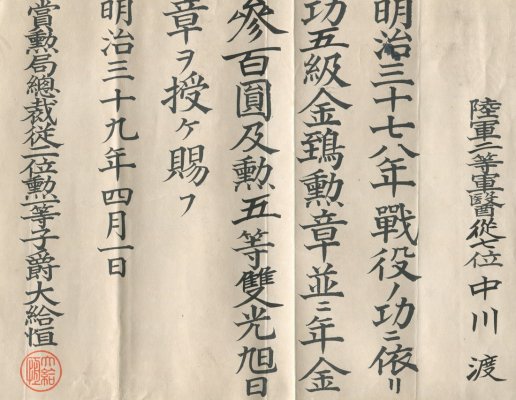 陸軍二等軍醫從七位中川渡
明治三十七八年戰役ノ功ニ依リ
功五級金鵄勲章並ニ年金
參百圓及勲五等雙光旭日
章ヲ授ケ賜フ
明治三十九年四月一日
賞勲局總裁從二位勲一等子爵大給恒